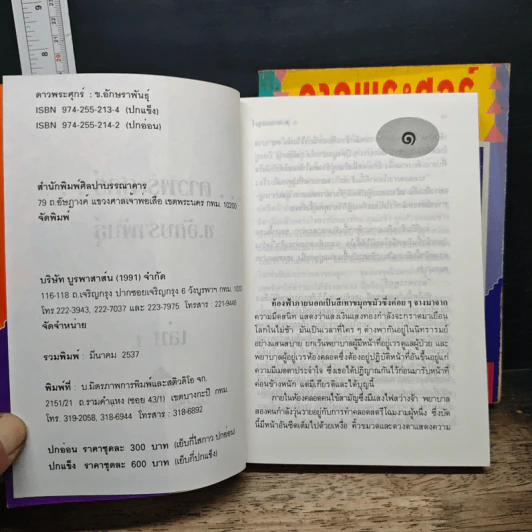 ดาวพระศุกร์ : ข.อักษราพันธุ์
ISBN 974-255-213-4 (ปกแข็ง)
ISBN 974-255-214-2 (ปกอ่อน)
สำนักพิมพ์ศิลปาบรรณาคาร
79 ถ.อัษฎางค์ แขวงศาลเจ้าพ่อเสือ เขตพระนคร กทม. 10200
จัดพิมพ์
บริษัท บูรพาสาส์น (1991) จำกัด
116-118 ถ.เจริญกรุง ปากซอยเจริญกรุง 6 วังบูรพาฯ กทม.
โทร.222-3943, 222-7037 และ 223-7975 โทรสาร : 221-9446
จัดจำหน่าย
รวมพิมพ์ : มีนาคม 2537
พิมพ์ที่ : บ.มิตรภาพการพิมพ์และสติวดิโอ จก.
2151/21 ถ.รามคำแหง (ซอย 43/1) เขตบางกะปิ กทม.
โทร. 319-2058, 318-6944 โทรสาร : 318-6892
ปกอ่อน ราคาชุดละ 300 บาท (เย็บกี่ไสกาว ปกอ่อน)
ปกแข็ง ราคาชุดละ 600 บาท (เย็บกี่ปกแข็ง)
ดาวพระศุกร์
๑
ท้องฟ้าภายนอกเป็นสีเทาขมุกขมัวซึ่งค่อย ๆ จางมาจาก
ความมืดสนิท แสดงว่าแสงเงินแสงทองกำลังจะกราดมาเยือน
โลกในไม่ช้า มันเป็นเวลาที่ใคร ๆ ต่างพากันอยู่ในนิทรารมณ์
อย่างแสนสบาย ยกเว้นพยาบาลผู้มีหน้าที่อยู่เวรดูแลผู้ป่วย และ
พยาบาลผู้อยู่เวรห้องคลอดซึ่งต้องอยู่ปฏิบัติหน้าที่อันขึ้นอยู่แก่
ความมีเมตตาประจำใจ ซึ่งเธอได้ปฏิญาณกันไว้ก่อนมารับหน้าที่
ค่อนข้างหนัก แต่มีเกียรติและได้บุญนี้
ภายในห้องคลอดคนไข้สามัญซึ่งมีแสงไฟสว่างจ้า พยาบาล
สองคนกำลังวุ่นรายอยู่กับการทำคลอดสตรีโฉมงามผู้หนึ่ง ซึ่งบัด
นี้มีหน้าอันซีดเต็มไปด้วยเหงื่อ คิ้วขมวดและดวงตาแสดงความ